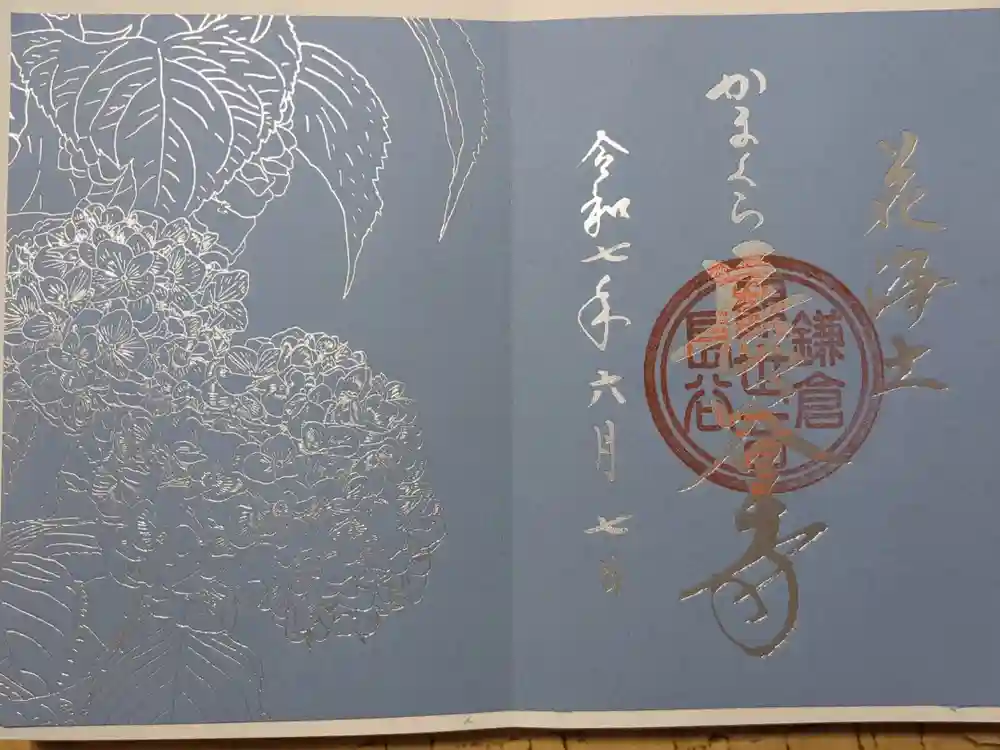 花浄土
かまくら 長谷寺
令和七年六月七日
鎌倉
観世音
長谷